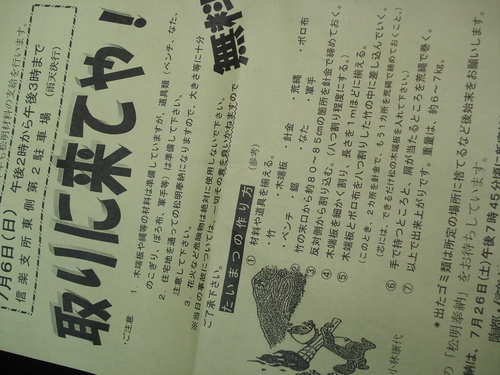 も松明材料の支給を行います。
7月6日(日) 午後2時から午後3時まで
信楽支所東側 第2駐車場 (雨天決行)
取りに来てや!
無料
・ご注意
1．木端板や縄等の材料は準備していますが、道具類(ペンチ、なた、
のこぎり、ぼろ布、軍手等)は準備して下さい。
2．住宅地を通っての松明奉納になりますので、大きさ等に十分
注意して下さい。
3．花火など危険物は絶対に使用しないで下さい。
※当日の事故については、一切その責を負いかねますので
ご了承下さい。
たいまつの作り方
(参考)
① 材料や道具を揃える。
・竹 ・木端板 ・針金 ・荒縄 ・ボロ布
・ペンチ ・鋸 ・なた ・軍手
② 竹の末口から約80～85cmの箇所を針金で締めておく。
③ 反対側から割り込む。(八つ割り程度にする。)
④ 木端板を細かく割り、長さを1mほどに揃える。
⑤ 木端板とボロ布を八つ割りした竹の中に差し込んでいく。
(このとき、2カ所を針金で、もう1カ所を荒縄で締めておくこと。)
(芯には、できるだけ松の木端板を入れて下さい。)
⑥ 手で持つところと、肩が当たるところを荒縄で巻く。
⑦ 以上で出来上がりです。重量は、約6～7kg。
小林康代
*出たゴミ類は所定の場所に捨てるなど後始末をお願いします。
の「松明奉納」をお待ちしています。
納は、7月26日(土)午後7時45